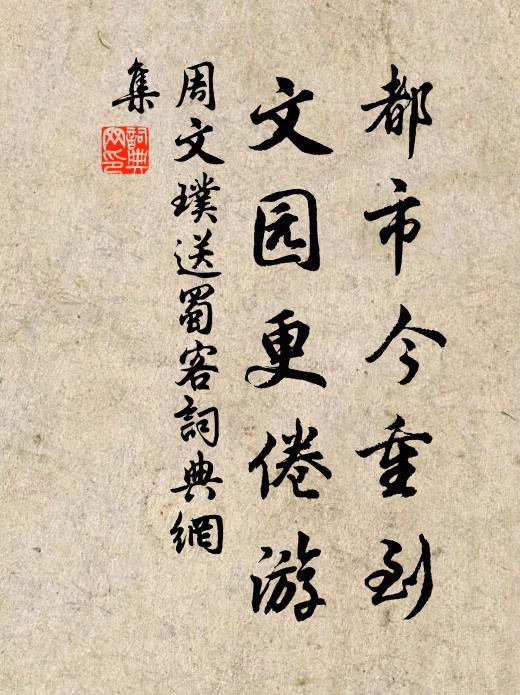 都市今重到
文园更倦游
周文璞送蜀客詞典網
集
詞典
网印